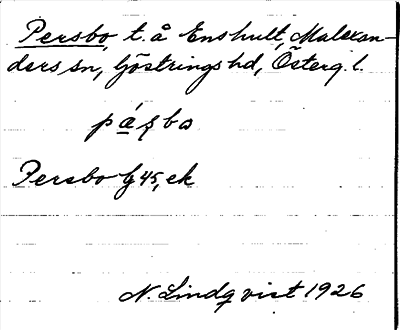 Persbo, t. å Enshult, Malexan-
ders sn, Göstrings hd, Österg. l.
Persbo G 45, ek
N. Lindqvist 1926